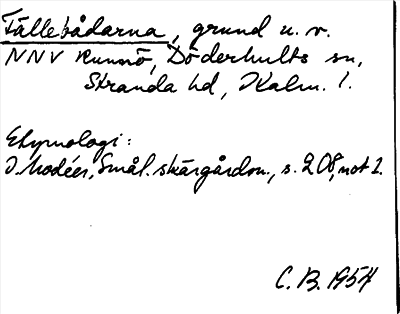 Fällebådarna, grund u. v.
NNV Runnö, Döderhults sn,
Stranda hd, Kalm. l.
Etymologi:
I. Modéer, Smål. skärgårdsn., s. 208, not 2.
C. B. 1954